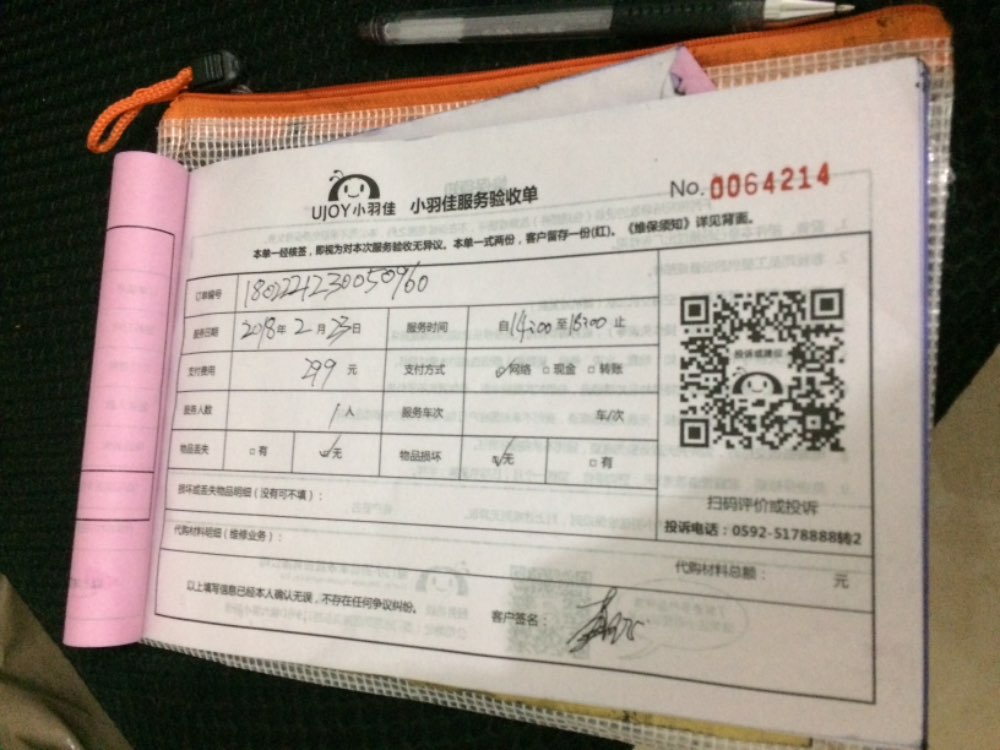 UJOY小羽佳 小羽佳服务验收单 No. 0064214
本单一经核签，即视为对本次服务验收无异议。本单一式两份，客户留存一份(红)。《维保须知》详见背面。
订单编号
服务日期 2018年 2 月 23日 服务时间 自14:00至18:00止
支付费用 299 元 支付方式 ✓网络 □现金 □转账
服务人数 1人 服务车次 车/次
物品丢失 □有 ✓无 物品损坏 ✓无 □有
投诉或建议
损坏或丢失物品明细（没有可不填）：
扫码评价或投诉
投诉电话：0592-5178888转2
代购材料明细（维修业务）：
代购材料总额： 元
以上填写信息已经本人确认无误，不存在任何争议纠纷。 客户签名：